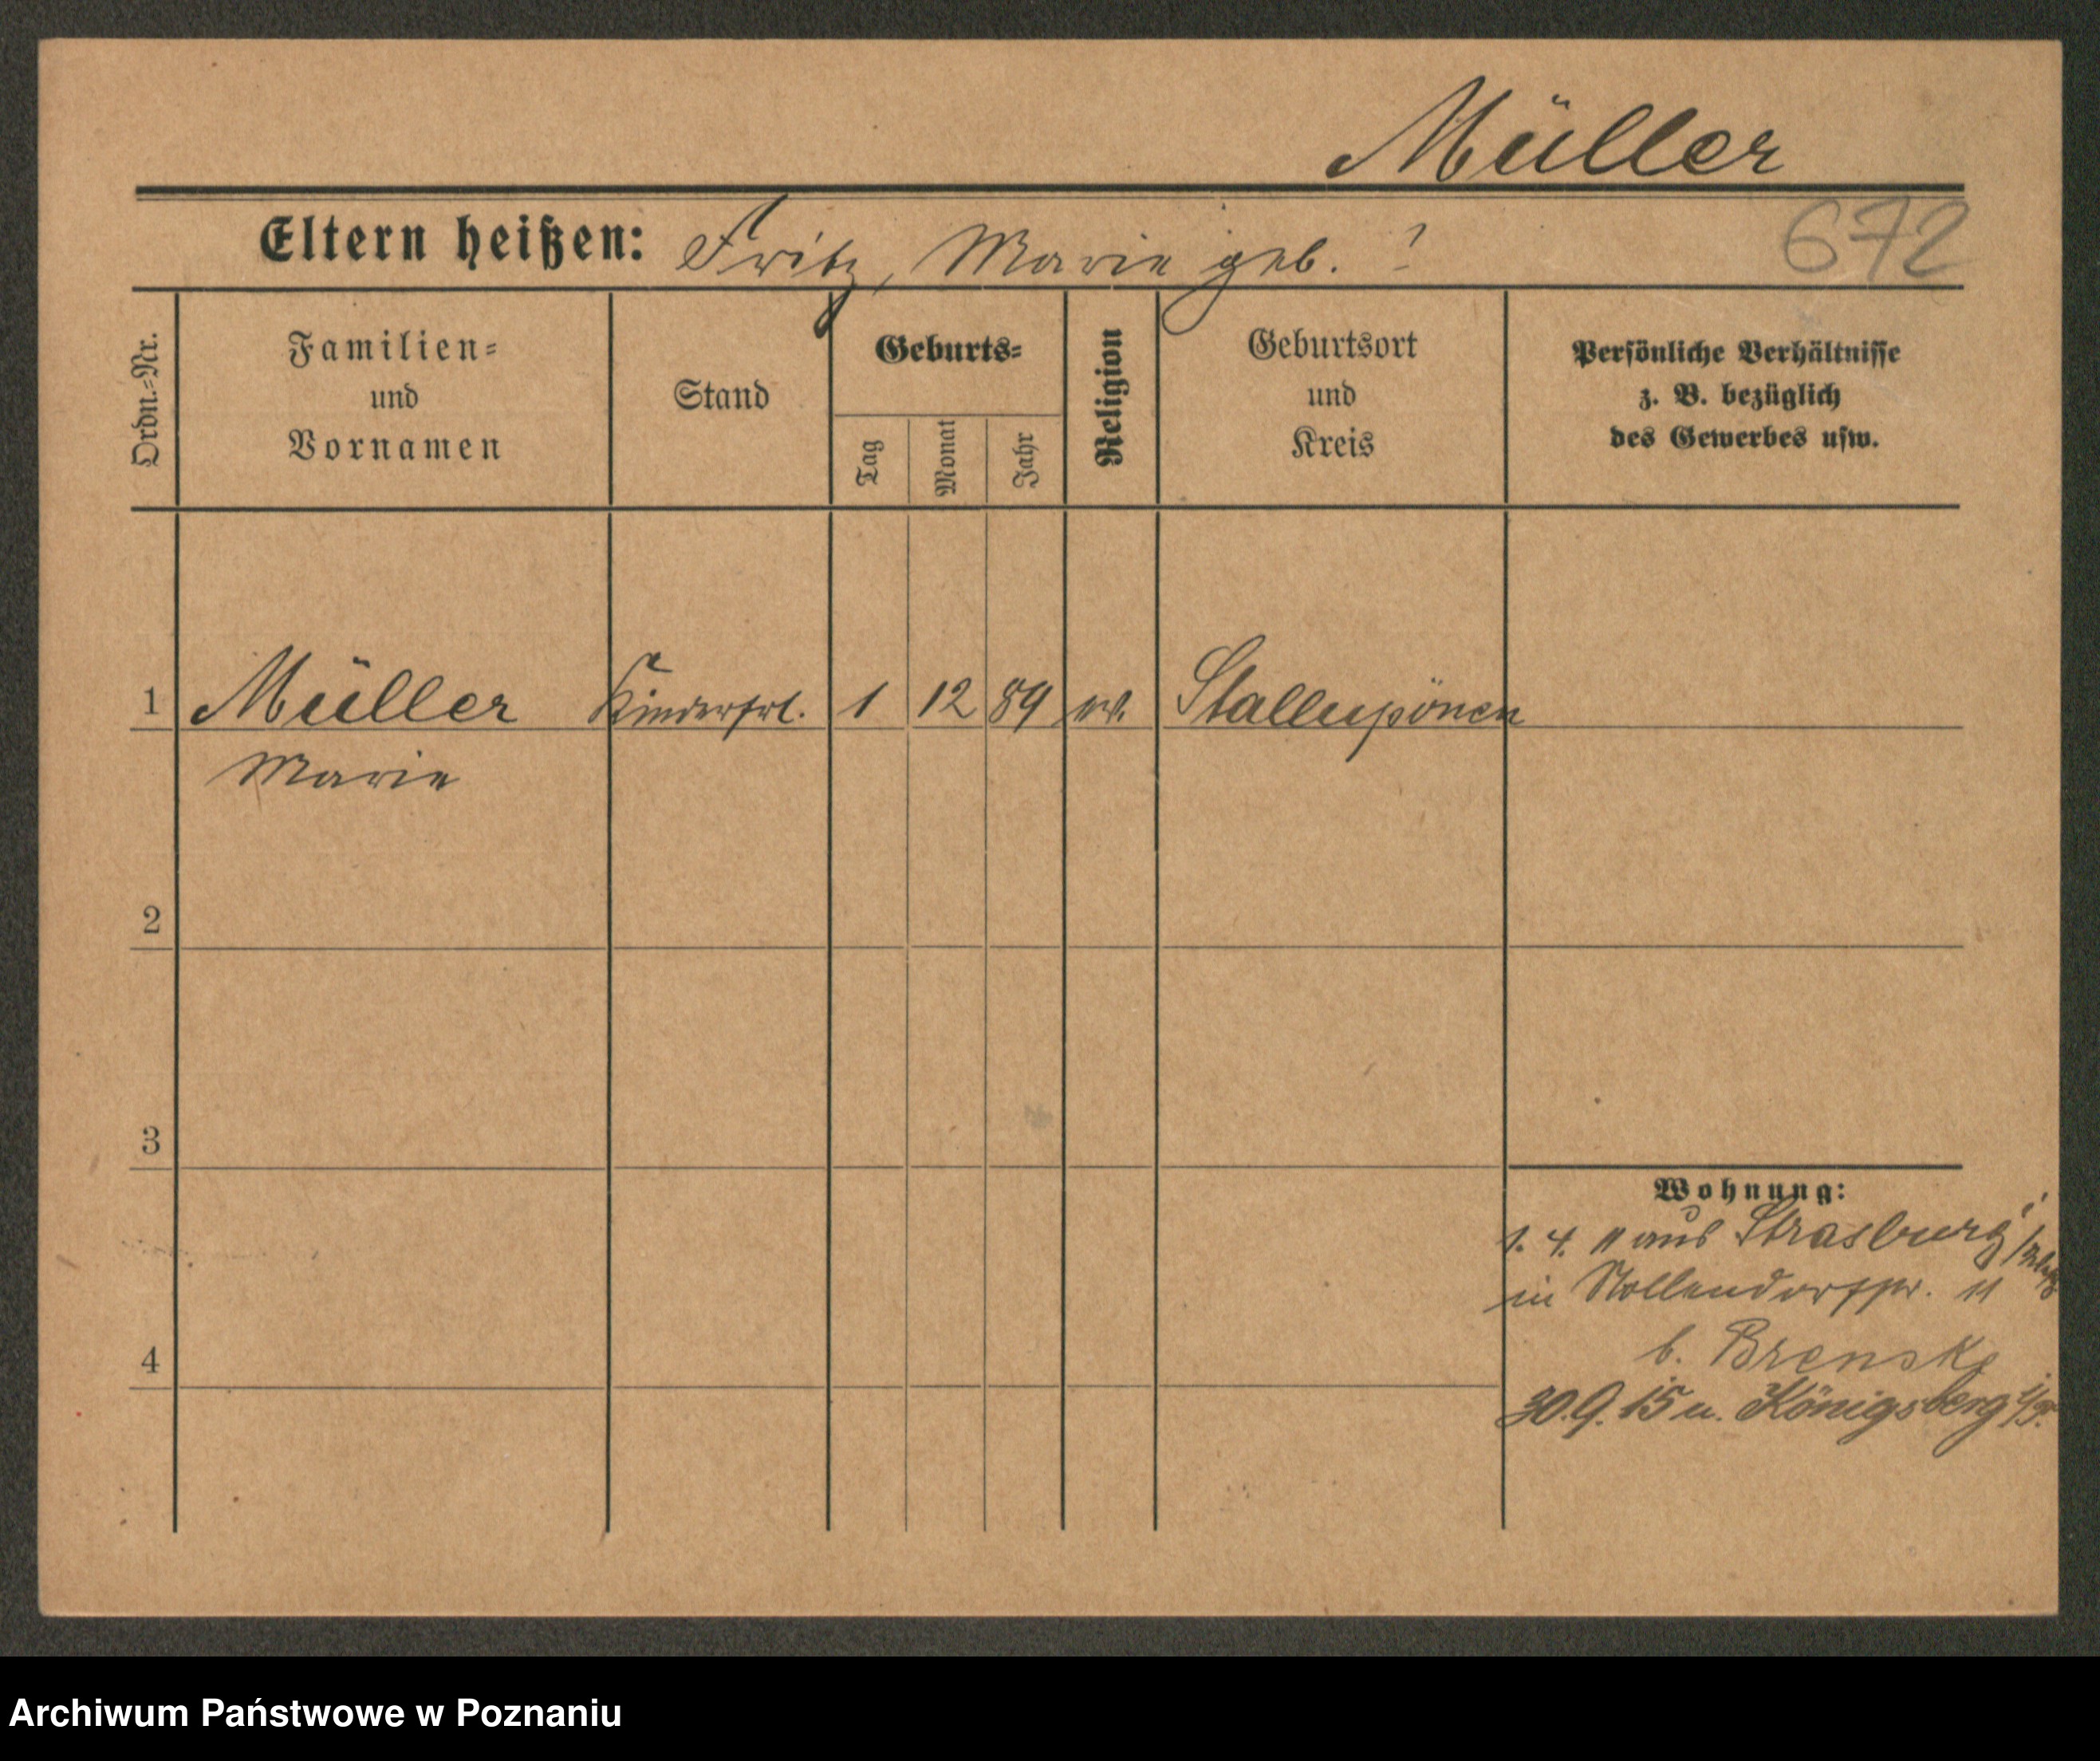 Müller
Eltern heißen: Fritz, Marie geb. ?
672
Ordn.-Nr.
Familien-
und
Vornamen
Stand
Geburts-
Tag
Monat
Jahr
Religion
Geburtsort
und
Kreis
Persönliche Verhältnisse
z. B. bezüglich
des Gewerbes usw.
1 Müller Kinderfrl. 1 12 89 ev. Stallupönen
Marie
2
3
4
Wohnung:
1. 4. 11 aus Strasburg
in Nollendorfstr. 11
b. Brenske
30.9.15 n. Königsberg i/Pr.
Archiwum Państwowe w Poznaniu